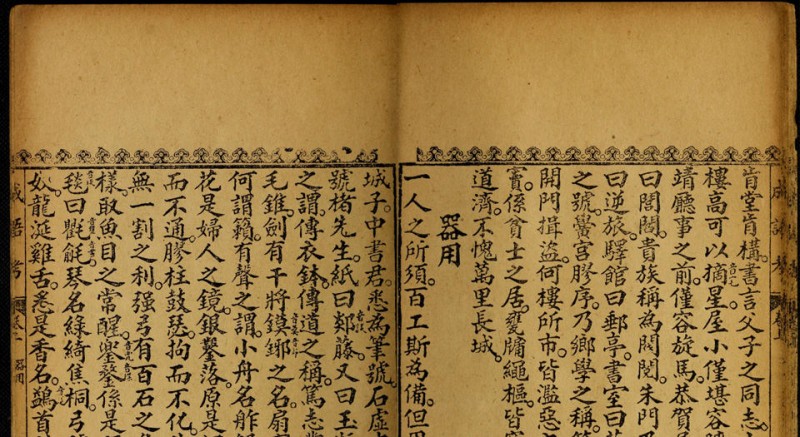 成語考
肯堂肯構。書言父子之同志。
樓高可以摘星。屋小僅堪容
靖廳事之前。僅容旋馬。恭賀
曰閭閻。貴族稱為閥閱。朱門
曰逆旅。驛館曰郵亭。書室曰
之號。黌宮膠序。乃鄉學之稱。
開門揖盜。何樓所市。皆濫惡
竇。係貧士之居。甕牖繩樞。皆
道濟。不愧萬里長城。
器用
一人之所須。百工斯為備。但
城子。中書君。悉為筆號。石虛
號楮先生。紙曰剡藤。又曰玉
之謂。傳衣鉢。傳道之稱。篤志
毛錐。劍有干將鏌鎁之名。扇
何謂籟。有聲之謂。小舟名舴
花是婦人之鏡。銀鑿落。原是
而不通。膠柱鼓瑟。拘而不化。
無一割之利。强弓有百石之
樣。取魚目之常醒。兜鍪。係是
毯曰氍毹。琴名綠綺焦桐。弓
奴。龍涎雞舌。悉是香名。鷁首
成語考 器用